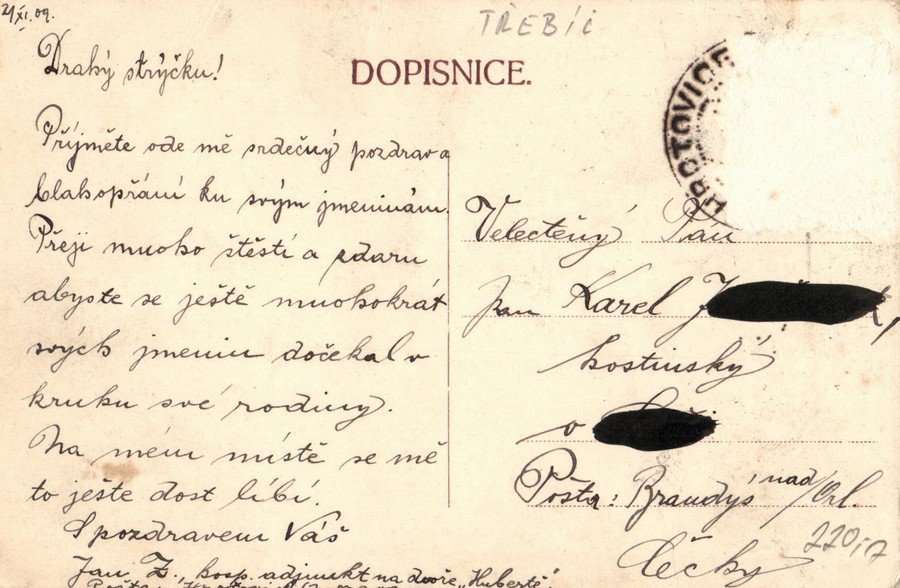 2/XI. 09.
TŘEBÍČ
Drahý strýčku!
DOPISNICE.
Příjměte ode mě srdečný pozdrav a
blahopřání ku svým jmeninám.
Přeji mnoho štěstí a zdaru
abyste se ještě mnohokrát
svých jmenin dočekal v
kruhu své rodiny.
Na mém místě se mě
to ješte dost líbí.
S pozdravem Váš
Jan Z., hosp. adjunkt na dvoře „Hubertě“.
Pošta:
ROTOVICE
Velectěný Pan
pan Karel J
hostinský
v
Pošta: Brandýs nad/Orl.
Čechy
220,17